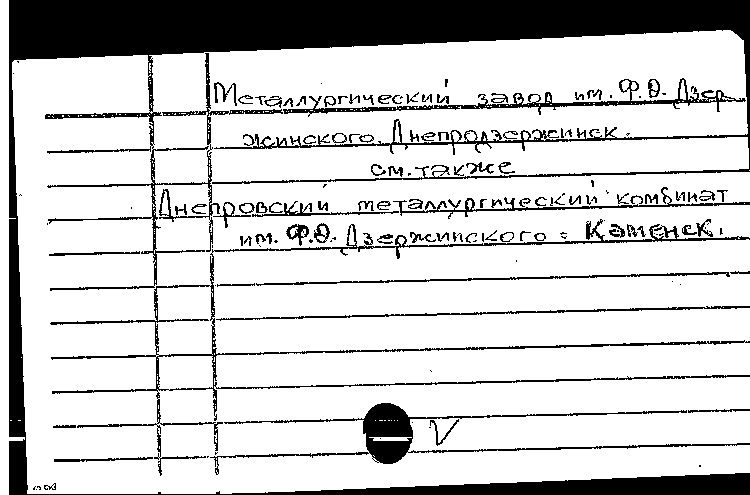 Металлургический завод им. Ф.Э. Дзер
жинского. Днепродзержинск.
см. также
Днепровский металлургический комбинат
им. Ф.Э. Дзержинского. Каменск.
V